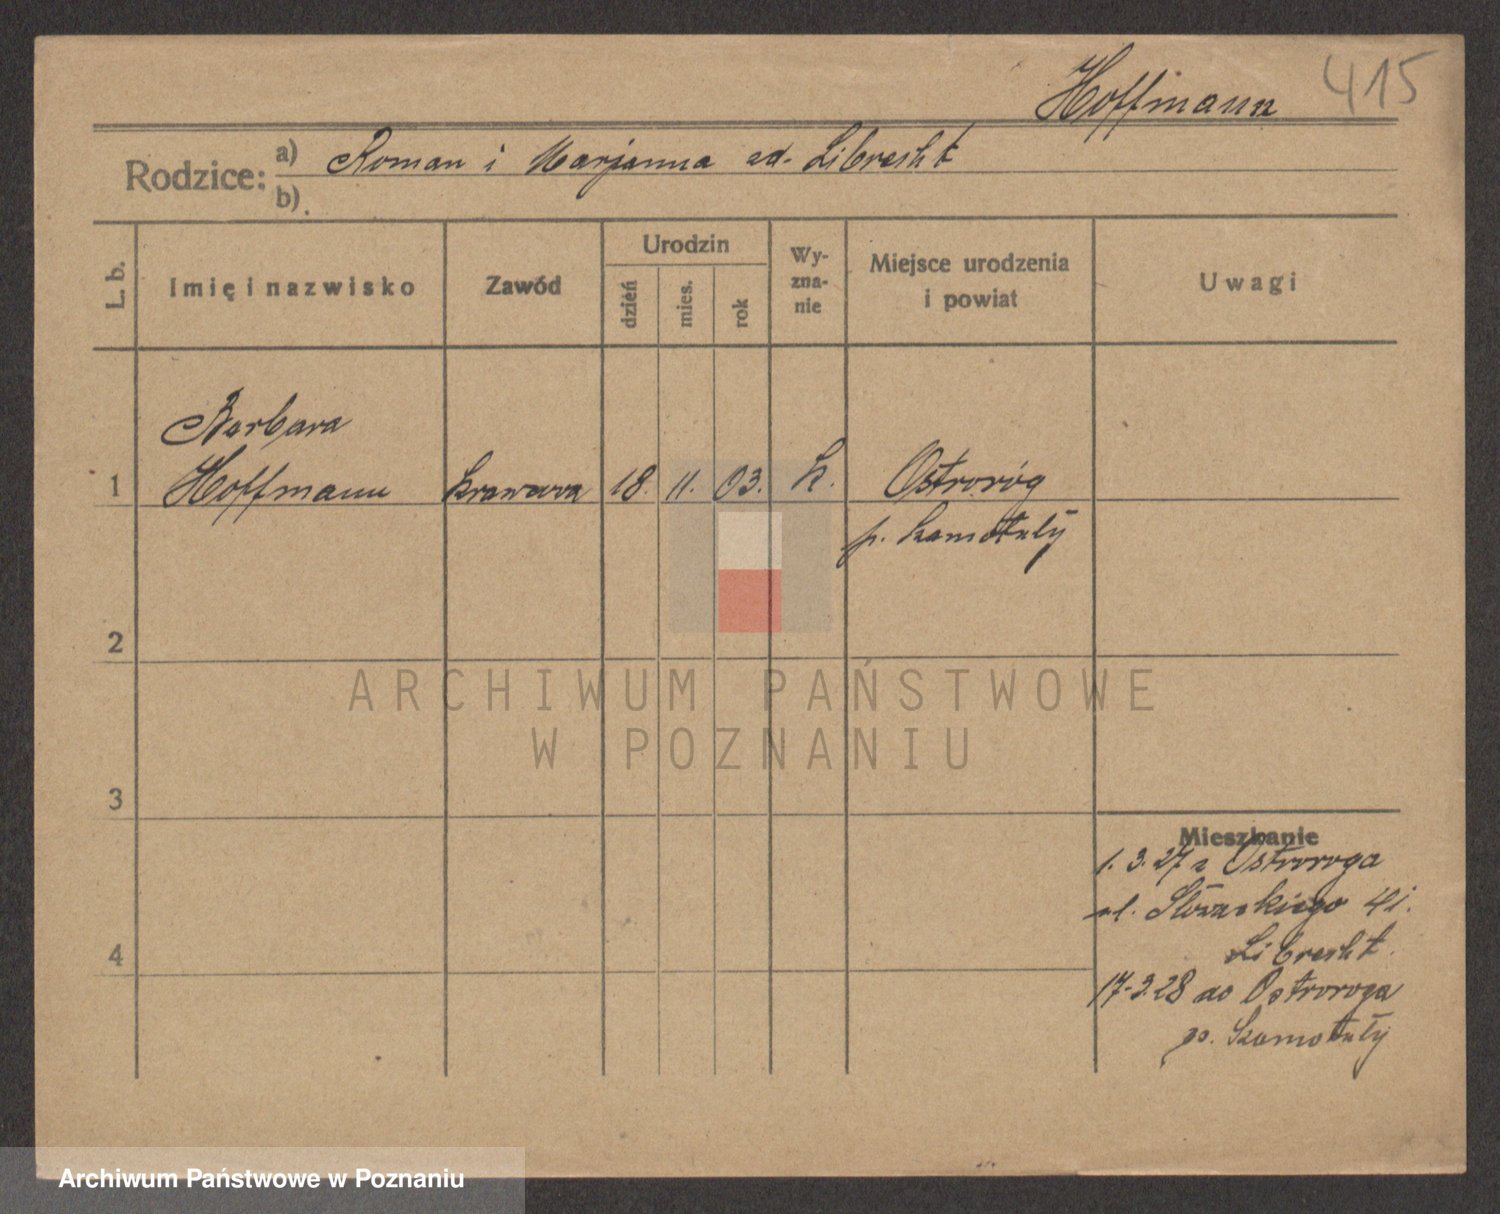 Hoffmann 415
Rodzice: a) Roman i Marjanna zd. Librecht
b)
L. b.
Imię i nazwisko
Zawód
Urodzin
dzień
mies.
rok
Wy-
zna-
nie
Miejsce urodzenia
i powiat
Uwagi
Barbara
1 Hoffmann krawcowa 18. 11. 03. k. Ostroróg
p. Szamotuły
2
ARCHIWUM PAŃSTWOWE
W POZNANIU
3
Mieszkanie
1. 3. 27 z Ostroroga
ul. Słowackiego
Librecht
4
17-3.28 do Ostroroga
p. Szamotuły
Archiwum Państwowe w Poznaniu